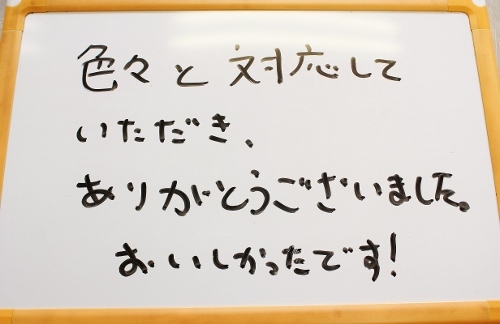 色々と対応して
いただき、
ありがとうございました。
おいしかったです!